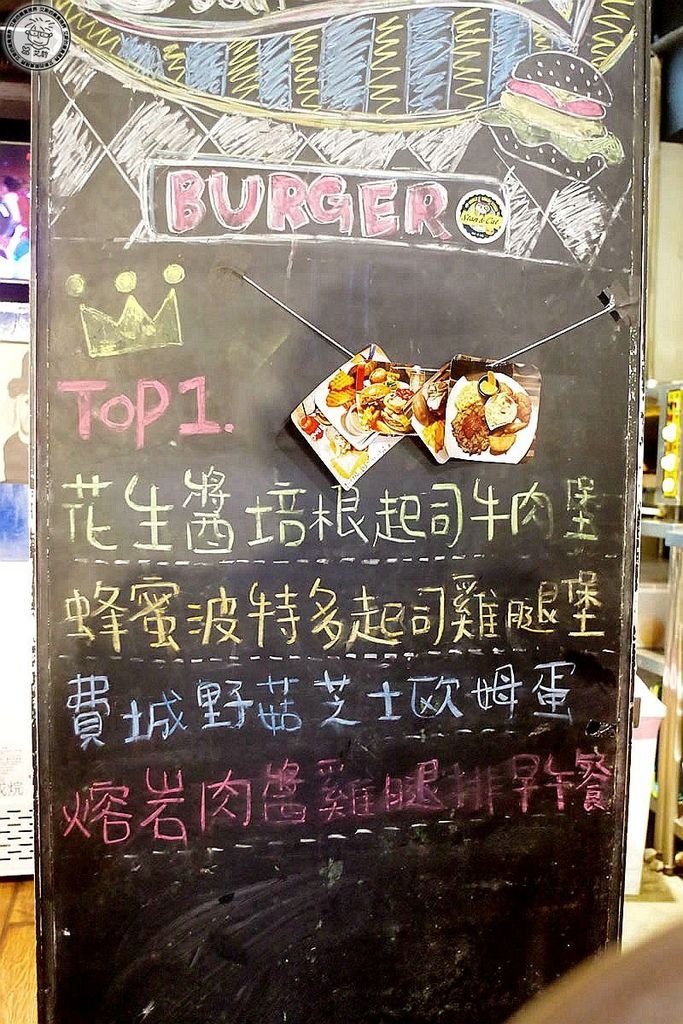 BURGER
Stan & Cat
TOP 1.
花生醬培根起司牛肉堡
蜂蜜波特多起司雞腿堡
費城野菇芝士欧姆蛋
熔岩肉醬雞腿排早午餐